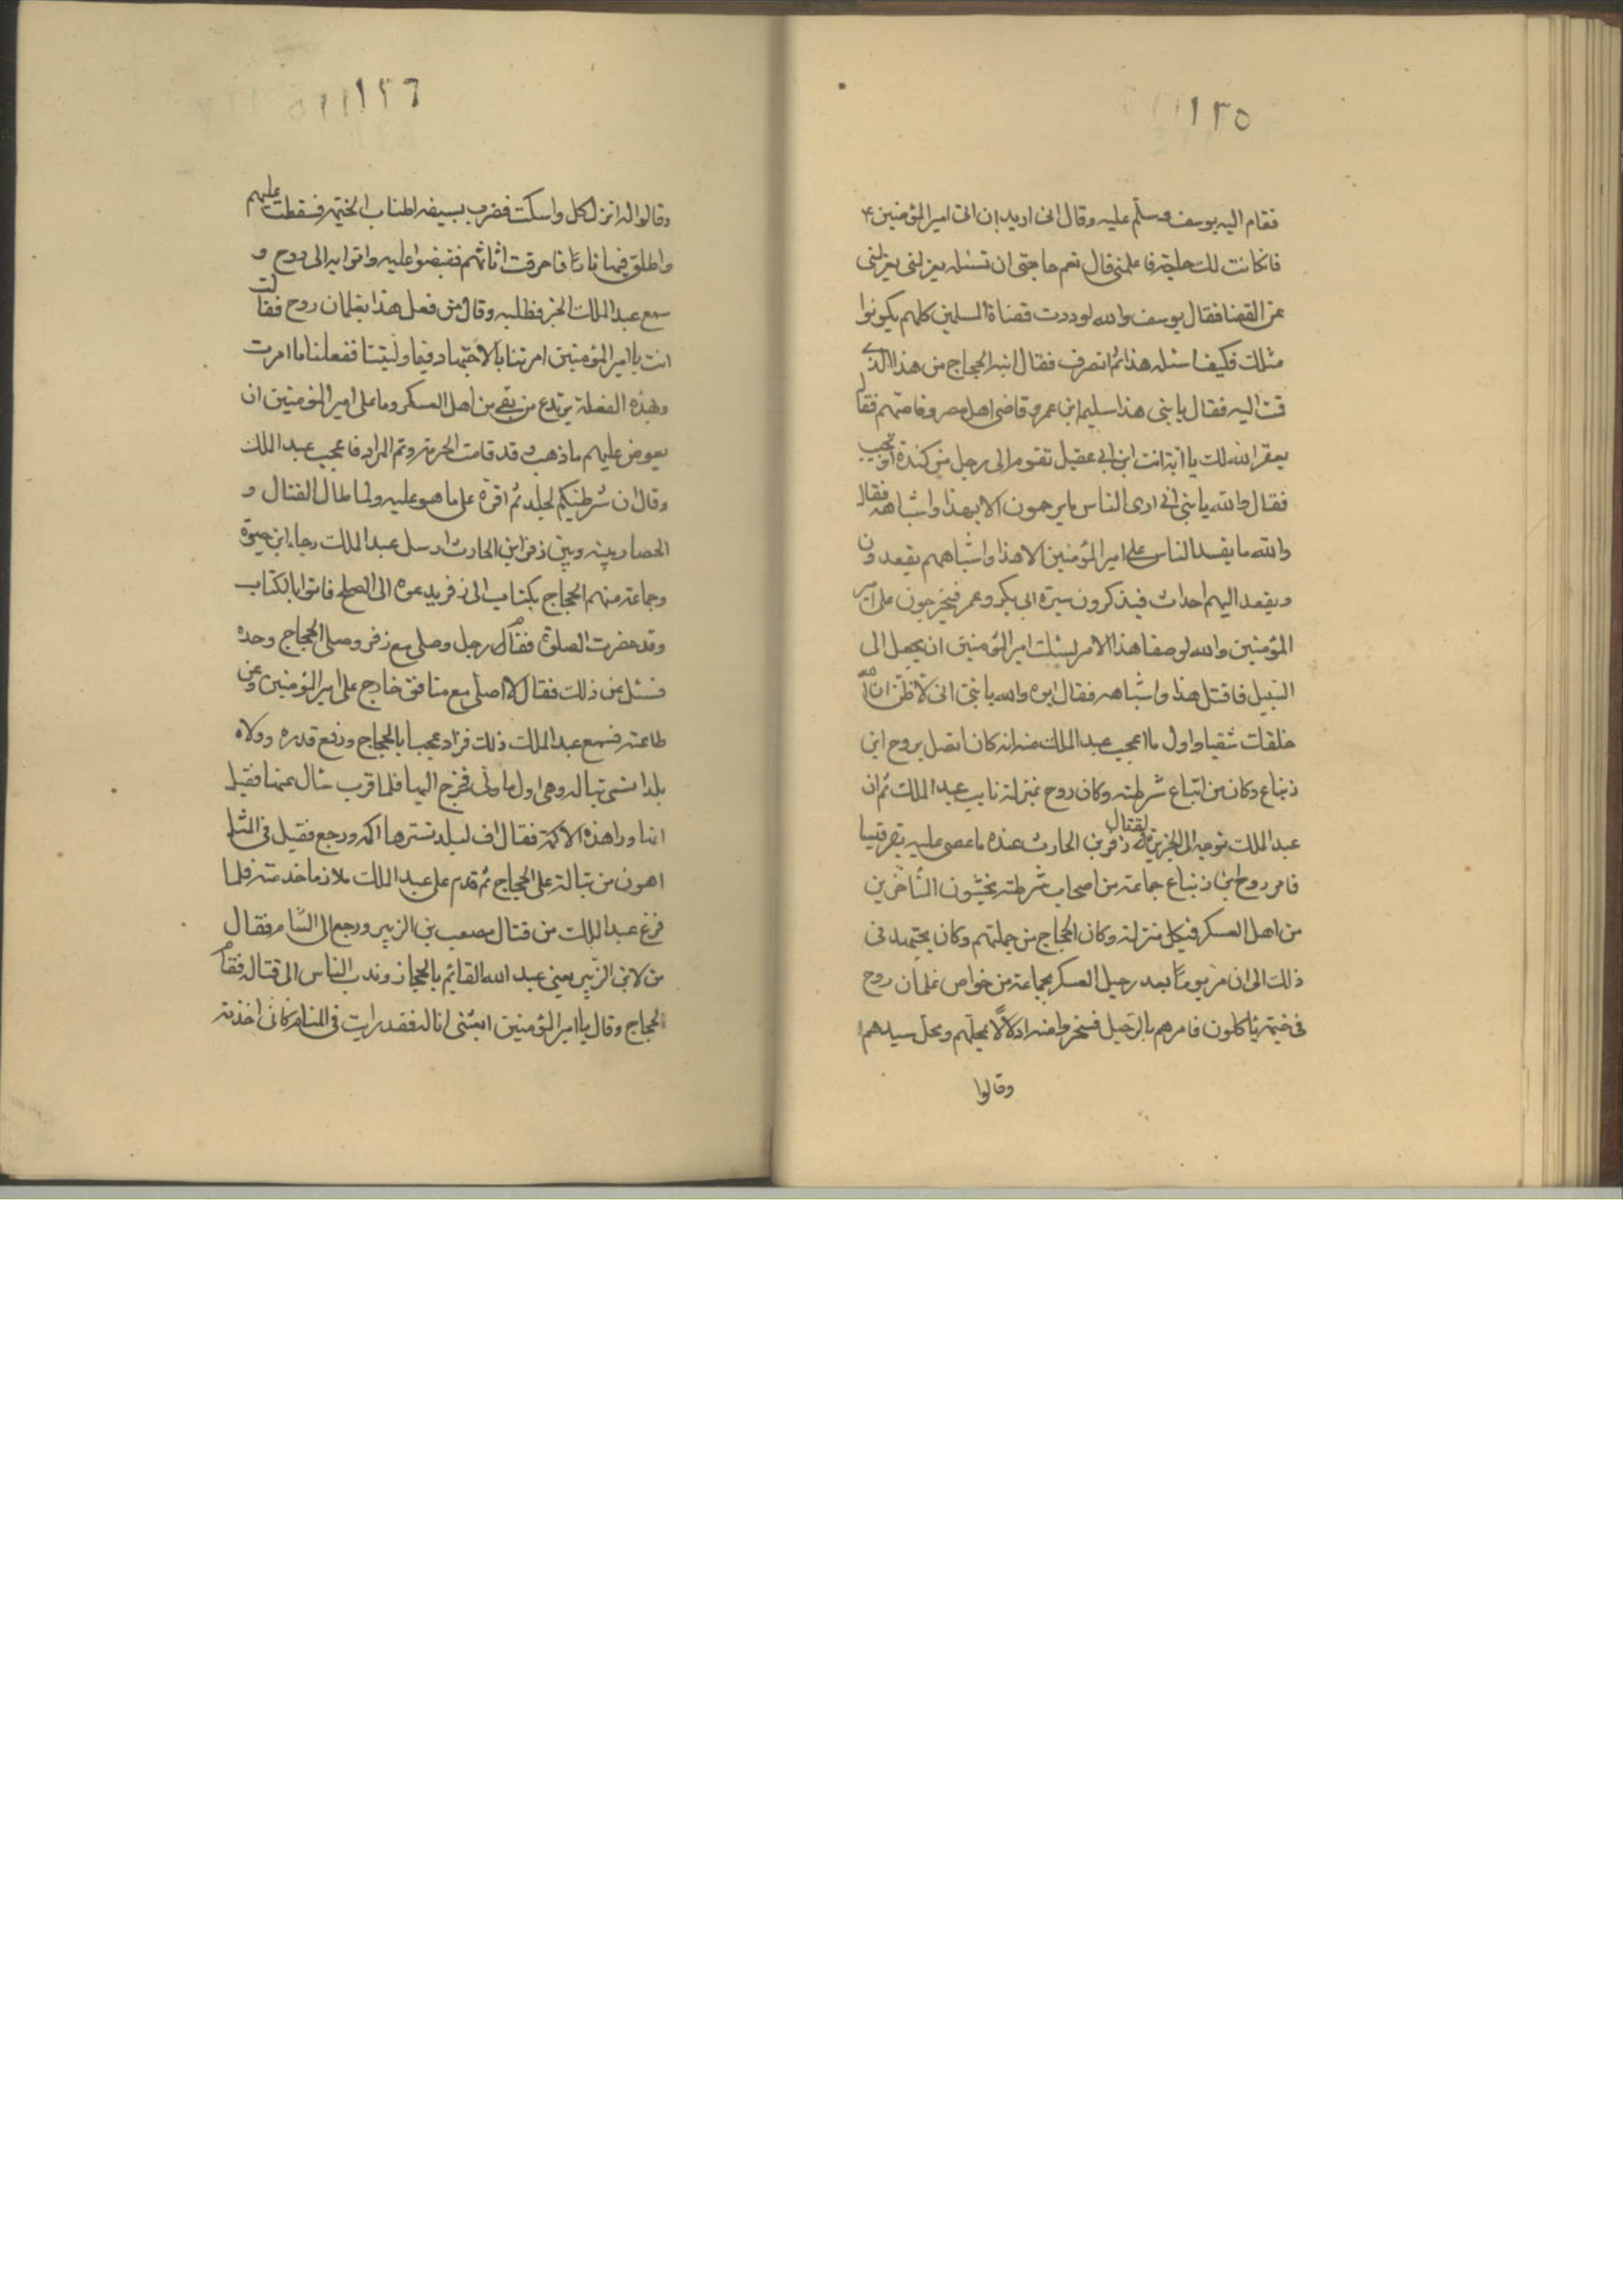 ١٣٥
فقام اليه يوسف وسلم عليه وقال انى اريد ان اتى امير المؤمنين
فان كانت لك حاجة فاعلمنى قال نعم حاجتى ان تسئله يعزلنى يعزلنى
عن القضا فقال يوسف والله لوددت قضاة المسلمين كلهم يكونوا
مثلك فكيف اسئله هذا ثم انصرف فقال ابنه الحجاج من هذا الذى
قمت اليه فقال يا بنى هذا سليم ابن عمرو قاضى اهل مصر وقاصهم فقال
يغفر الله لك يا ابة انت ابن ابى عقيل تقوم الى رجل من كندة او تجيب
فقال والله يا بنى انى ارى الناس ما يرحمون الا بهذا واشباهه فقال
والله ما يفسد الناس على امير المؤمنين الا هذا واشباههم يقعدون
ويقعد اليهم احداث فيذكرون سيرة ابى بكر وعمر فيخرجون على امير
المؤمنين والله لو صفا هذا الامر لسئلت امير المؤمنين ان يجعل الى
السبيل فاقتل هذا واشباهه فقال ابوه والله يا بنى انى لاظن ان الله
خلقك شقيا واول ما اعجب عبد الملك منه انه كان اتصل بروح ابن
زنباع وكان من اتباع شرطته وكان روح بمنزلة نايب عبد الملك ثم ان
عبد الملك توجه الى الجزيرة لقتال زفر بن الحارث عنده ما عصى عليه بقرقيسيا
فامر روح ابن زنباع جماعة من اصحاب شرطته يحثون المتأخرين
من اهل العسكر فى كل منزلة وكان الحجاج من جملتهم وكان يجتهد فى
ذلك الى ان مر يوماً بعد رحيل العسكر بجماعة من خواص غلمان روح
فى خيمة ياكلون فامرهم بالرحيل فسخروا منه ادلالاً بمحلهم ومحل سيدهم
وقالوا
١٣٦
وقالوا له انزل كل واسكت فضرب بسيفه اطناب الخيمه فسقطت عليهم
واطلق فيها ناراً فاحرقت اثاثهم فقبضوا عليه واتوا به الى روح و
سمع عبد الملك الخبر فطلبه وقال من فعل هذا بغلمان روح فقال
انت يا امير المؤمنين امرتنا بالاجتهاد فيما وليتنا ففعلنا ما امرت
وبهذه الفعلة يرتدع من بقى من اهل العسكر وما على امير المؤمنين ان
يعوض عليهم ما ذهب وقد قامت الحرمة وتم المراد فاعجب عبد الملك
وقال ان شرطيكم لجلد ثم اقره على ما هو عليه ولما طال القتال و
الحصار بينه وبين زفر ابن الحارث ارسل عبد الملك رجاء ابن حيوة
وجماعة منهم الحجاج بكتاب الى زفر يدعوه الى الصلح فاتوا بالكتاب
وقد حضرت الصلوة فقام رجل وصلى مع زفر وصلى الحجاج وحده
فسئل عن ذلك فقال لا اصلى مع منافق خارج على امير المؤمنين وعن
طاعته فسمع عبد الملك ذلك فزاد عجبا بالحجاج ورفع قدره وولاه
بلدا تسمى تباله وهى اول ما ولى فخرج اليها فلما قرب سال عنها فقيل
انها ورا هذه الاكمة فقال اف لبلد تسترها اكمه ورجع فقيل فى المثل
اهون من تبالة على الحجاج ثم قدم على عبد الملك ملازما خدمته فلما
فرغ عبد الملك من قتال مصعب بن الزبير ورجع الى الشام فقال
من لابن الزبير يعنى عبد الله القايم بالحجاز وندب الناس الى قتاله فقام
الحجاج وقال يا امير المؤمنين ابعثنى اناله فقد رايت فى المنام كانى اخذته